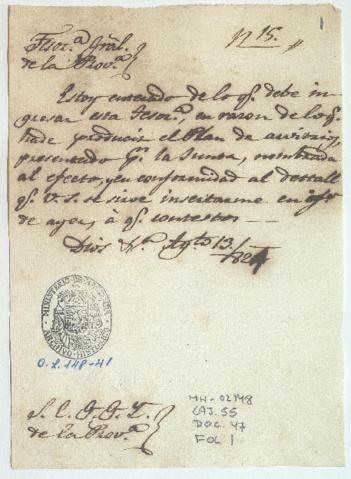 1
Tesor.ª Gral.
de la Prov.ª
Nº 15.
Estoy enterado de lo q.e debe in
gresar esta Tesor.ª, en razon de lo q.e
ha de producir el Plan de arbitrios,
presentado p.r la Junta, nombrada
al efecto, y en conformidad al detall
q.e V. S. se sirve insertarme en
de ayer, à q.e contesto
Dios Ag.to 13/824
MINISTERIO DE HACIENDA
ARCHIVO HISTORICO
O.L. 148-41
MH-02148
CAJ. 55
DOC. 47
FOL 1
de la Prov.ª